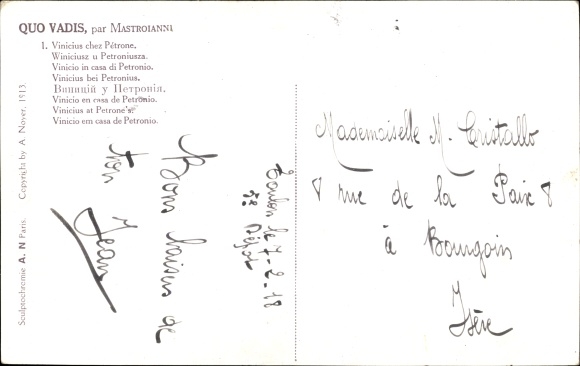 QUO VADIS, par MASTROIANNI
1. Vinicius chez Pétrone.
Winiciusz u Petroniusza.
Vinicio in casa di Petronio.
Vinicius bei Petronius.
Виницій у Петронія.
Vinicio en casa de Petronio.
Vinicius at Petrone's.
Vinicio em casa de Petronio.
Sculptochromie A. N Paris. Copyright by A. Noyer, 1913
Toulon le 7-2-18
5e Dépôt
Bons baisers de
ton Jean
Mademoiselle M. Cristallo
8 rue de la Paix 8
à Bourgoin
Isère